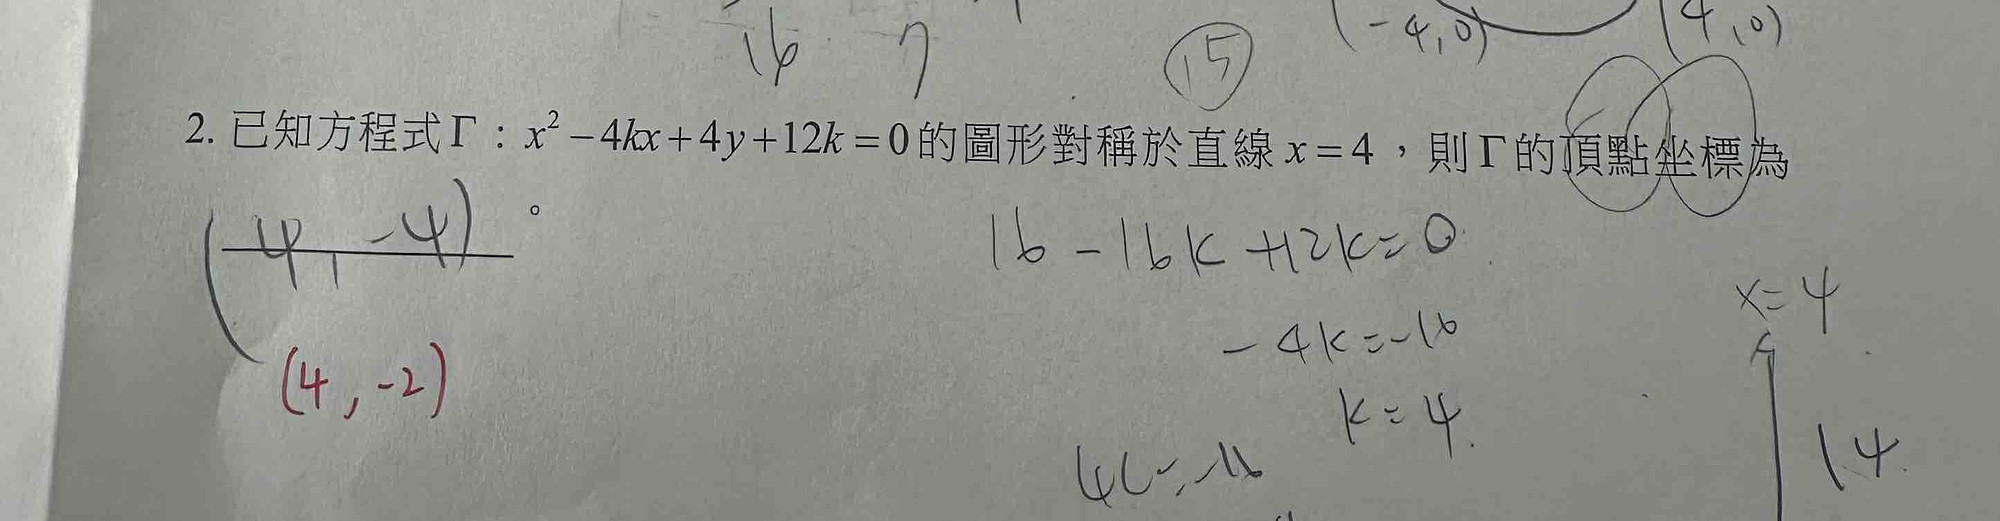 16 7 15 (-4,0) (4,0)
2. 已知方程式Γ：x²-4kx+4y+12k=0的圖形對稱於直線x=4，則Γ的頂點坐標為
(4, -4)。
16-16k+12k=0
x=4
-4k=-16
(4,-2)
k=4
14